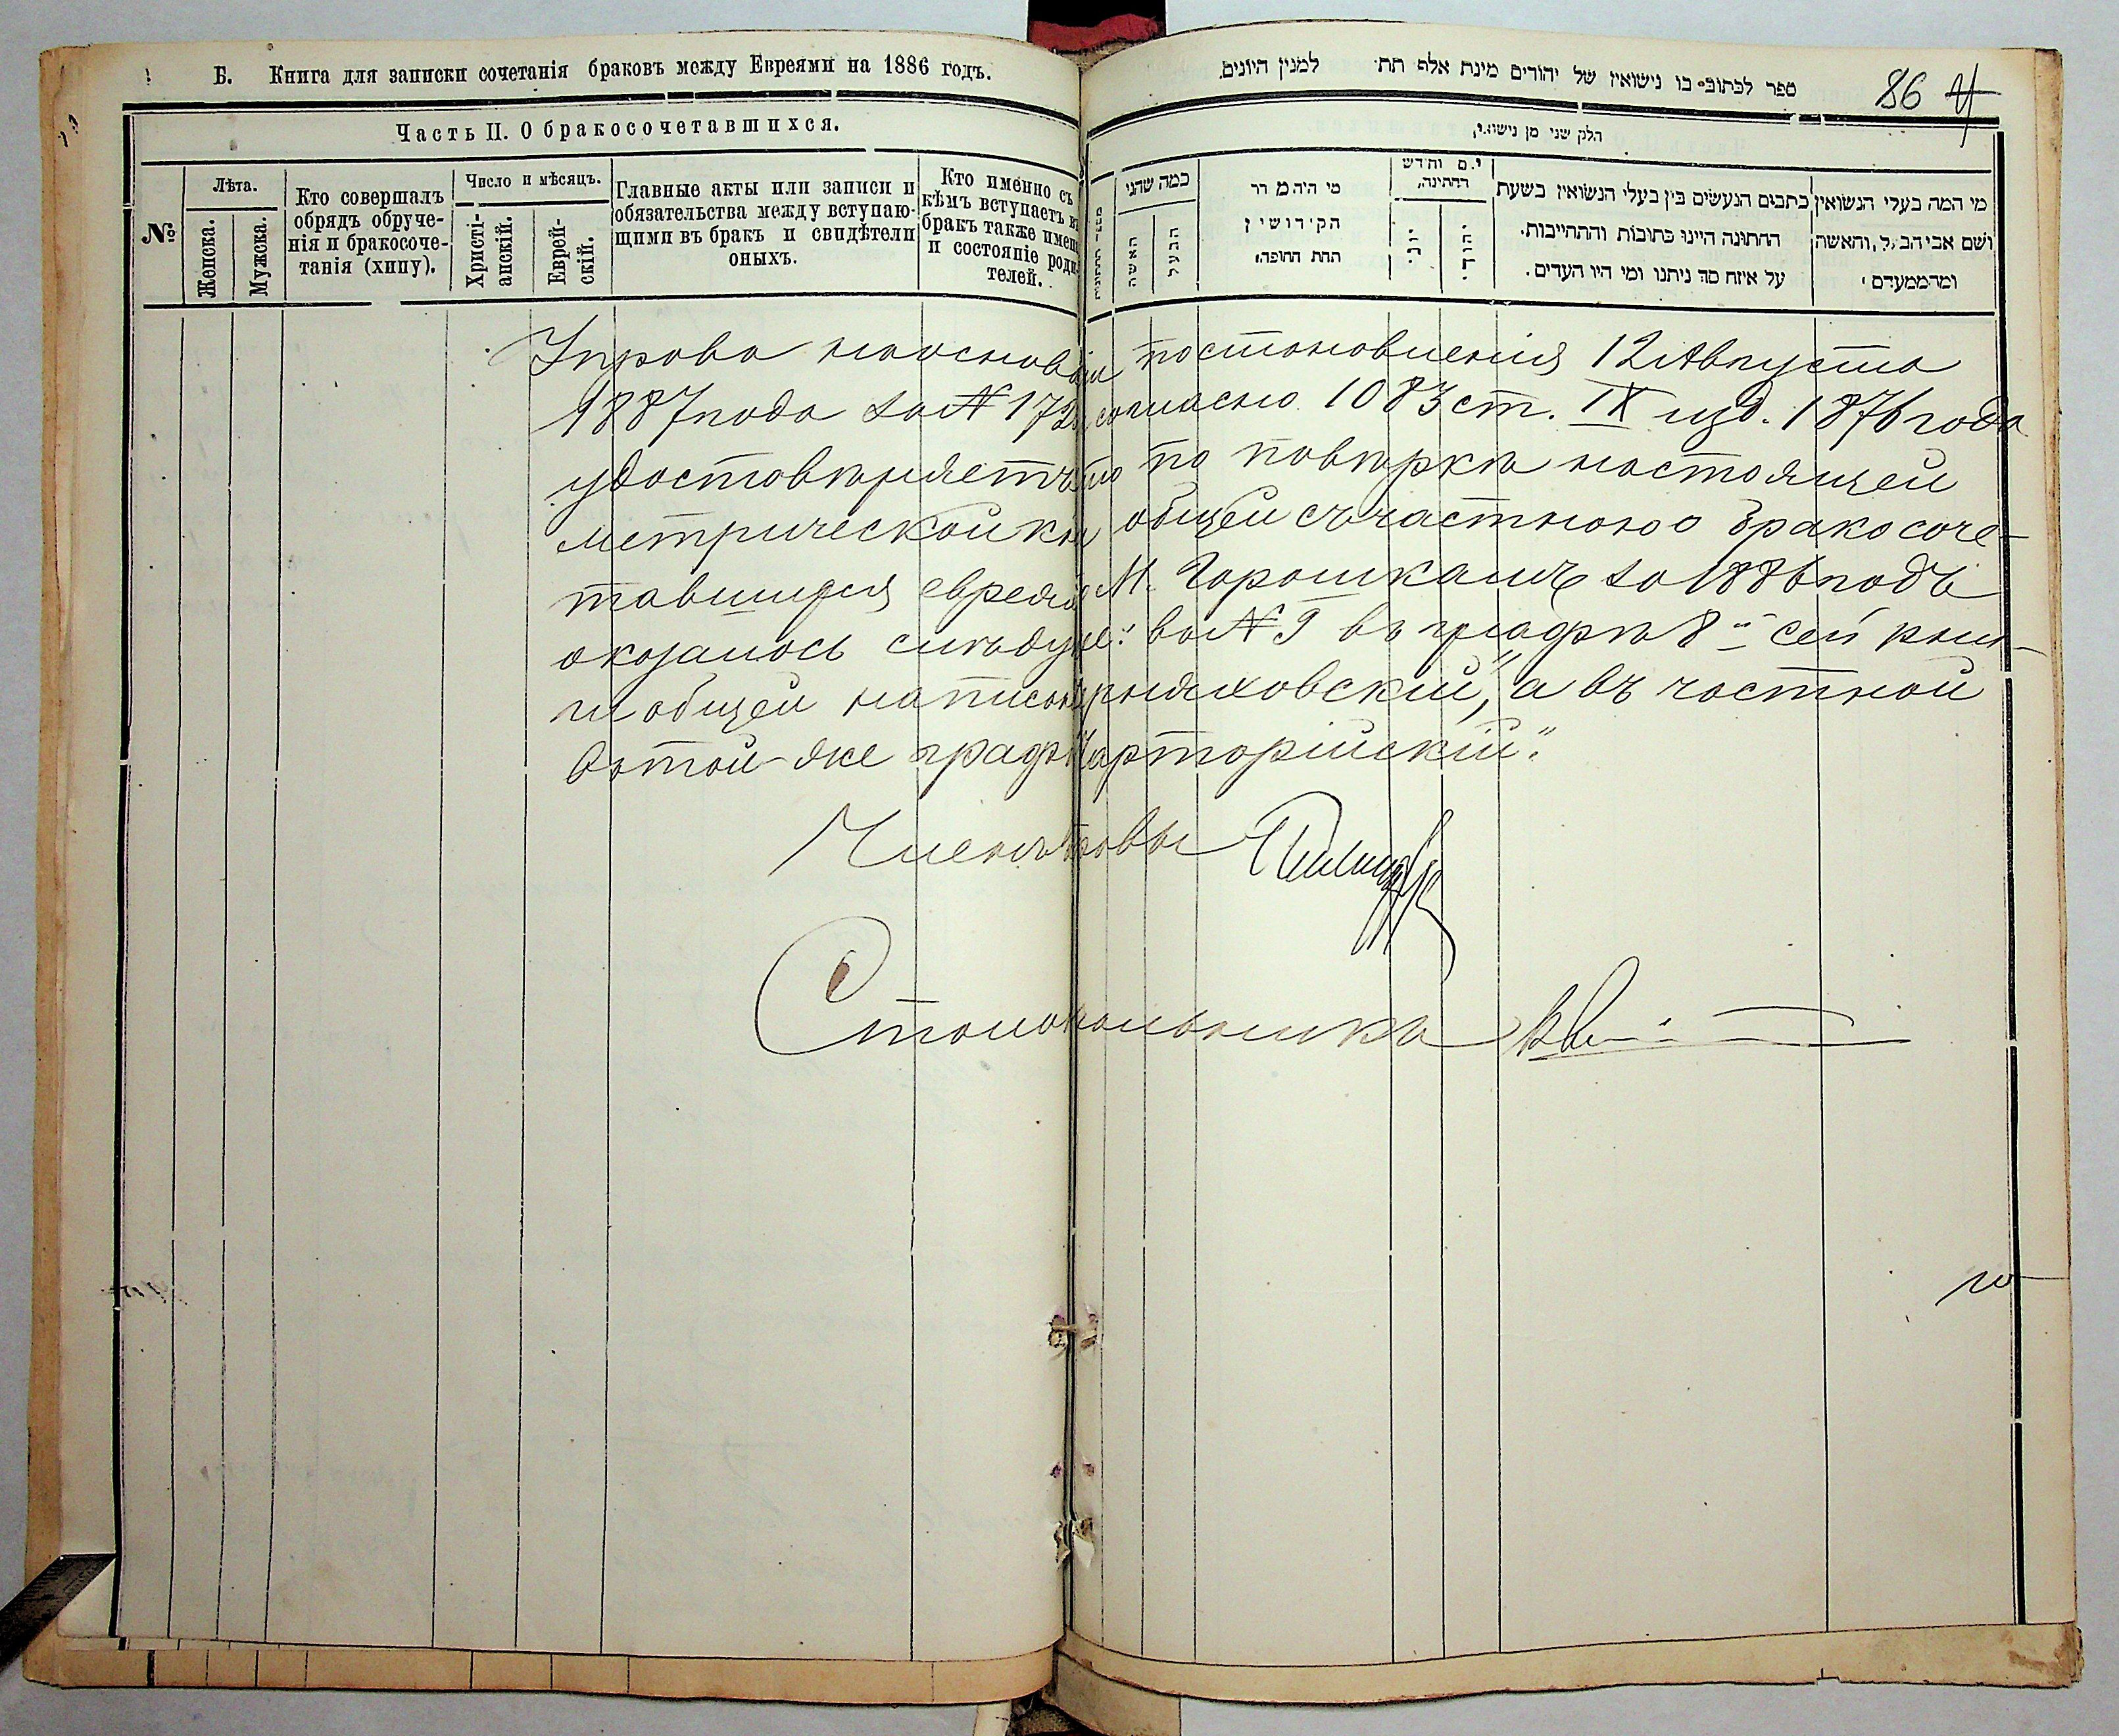 Б. Книга для записки сочетанія браковъ между Евреями на 1886 годъ.
Часть II. О бракосочетавшихся.
№
Лѣта.
Женска.
Мужска.
Кто совершалъ
обрядъ обруче-
нія и бракосоче-
танія (хипу).
Число и мѣсяцъ.
Христі-
анскій.
Еврей-
скій.
Главные акты или записи и
обязательства между вступаю-
щими въ бракъ и свидѣтели
оныхъ.
Кто именно съ
кѣмъ вступаетъ въ
бракъ также имена
и состояніе роди-
телей.
ספר לכתוב בו נישואין של יהודים מינת אלף תת למנין היונים.
86
חלק שני מן נישואין
כמה שהני
האשה
הבעל
מי היה מ דר
הקידושין
תחת החופה
יום וחדש
החתונה
יוני
יהודי
כתבים הנעשים בין בעלי הנשואין בשעת
החתונה היינו כתובות והתחייבות
על איזח סך ניתנו ומי היו העדים
מי המה בעלי הנשואין
ושם אביהב ל, והאשה
ומהממעדם
Управа на основаніи постановленія 12 Августа
1887 года за № 172, согласно 1083 ст. IX изд. 1876 года
удостовѣряетъ что по повѣркѣ настоящей
метрической книги общей съ частною о бракосоче-
тавшихся евреяхъ М. Горошкамъ за 1886 годъ
оказалось слѣдующее: во № 9 въ графѣ 8й сей кни-
ги общей написано а въ частной
въ той-же графѣ „Чарторійскій“.
Членъ Управы
Столоначальника